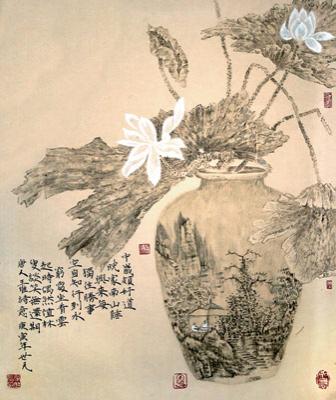 中歲頗好道
晚家南山陲
興來每
獨往勝事
空自知行到水
窮處坐看雲
起時偶然值林
叟談笑無還期
唐人王維詩意 庚寅年